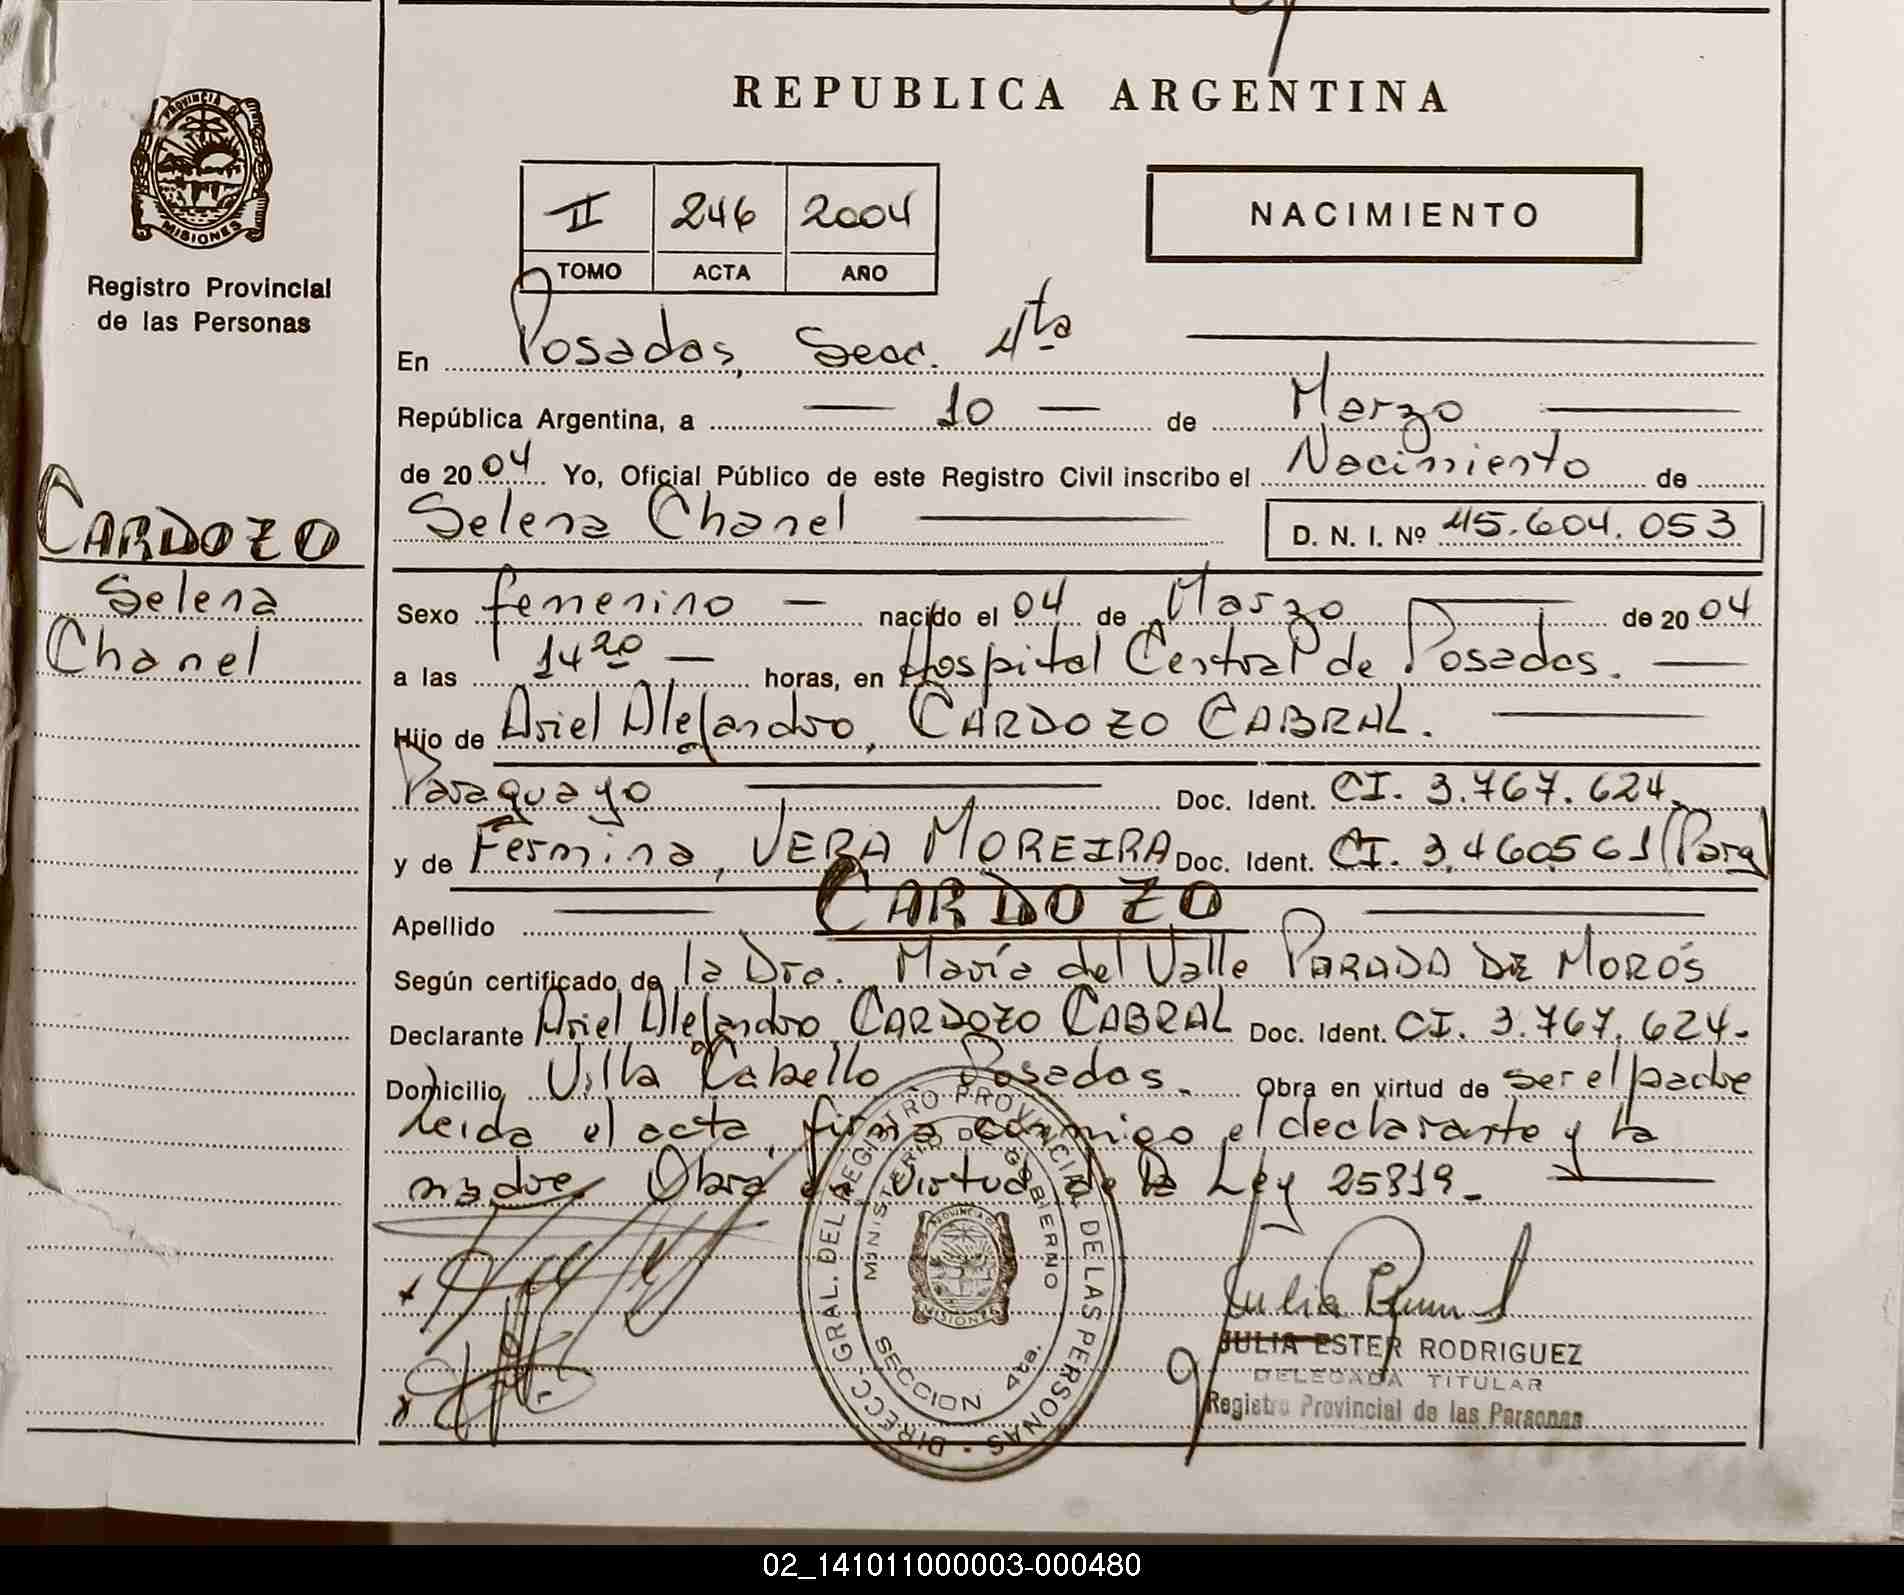 REPUBLICA ARGENTINA
PROVINCIA DE
MISIONES
Registro Provincial
de las Personas
II 246 2004
TOMO ACTA AÑO
NACIMIENTO
En Posadas, Secc. 4ta
República Argentina, a — 10 — de Marzo
de 2004 Yo, Oficial Público de este Registro Civil inscribo el Nacimiento de
Selena Chanel D. N. I. Nº 45.604.053
CARDOZO
Selena
Chanel
Sexo femenino — nacido el 04 de Marzo de 2004
a las 14 20 — horas, en Hospital Central de Posadas.
Hijo de Ariel Alejandro, CARDOZO CABRAL.
Paraguayo Doc. Ident. CI. 3.767.624.
y de Fermina, VERA MOREIRA Doc. Ident. CI. 3.460561 (Parag)
Apellido CARDOZO
Según certificado de la Dra. María del Valle PARADA DE MORÓS
Declarante Ariel Alejandro CARDOZO CABRAL Doc. Ident. CI. 3.767.624-
Domicilio Villa Cabello Posadas. Obra en virtud de ser el padre
Leida el acta, firma conmigo el declarante y la
madre. Obra en virtud de la Ley 25819.
DIRECC. GRAL. DEL REGISTRO PROVINCIAL DE LAS PERSONAS
MINISTERIO DE GOBIERNO
PROVINCIA DE
MISIONES
SECCION 4ta.
JULIA ESTER RODRIGUEZ
DELEGADA TITULAR
Registro Provincial de las Personas
02_141011000003-000480